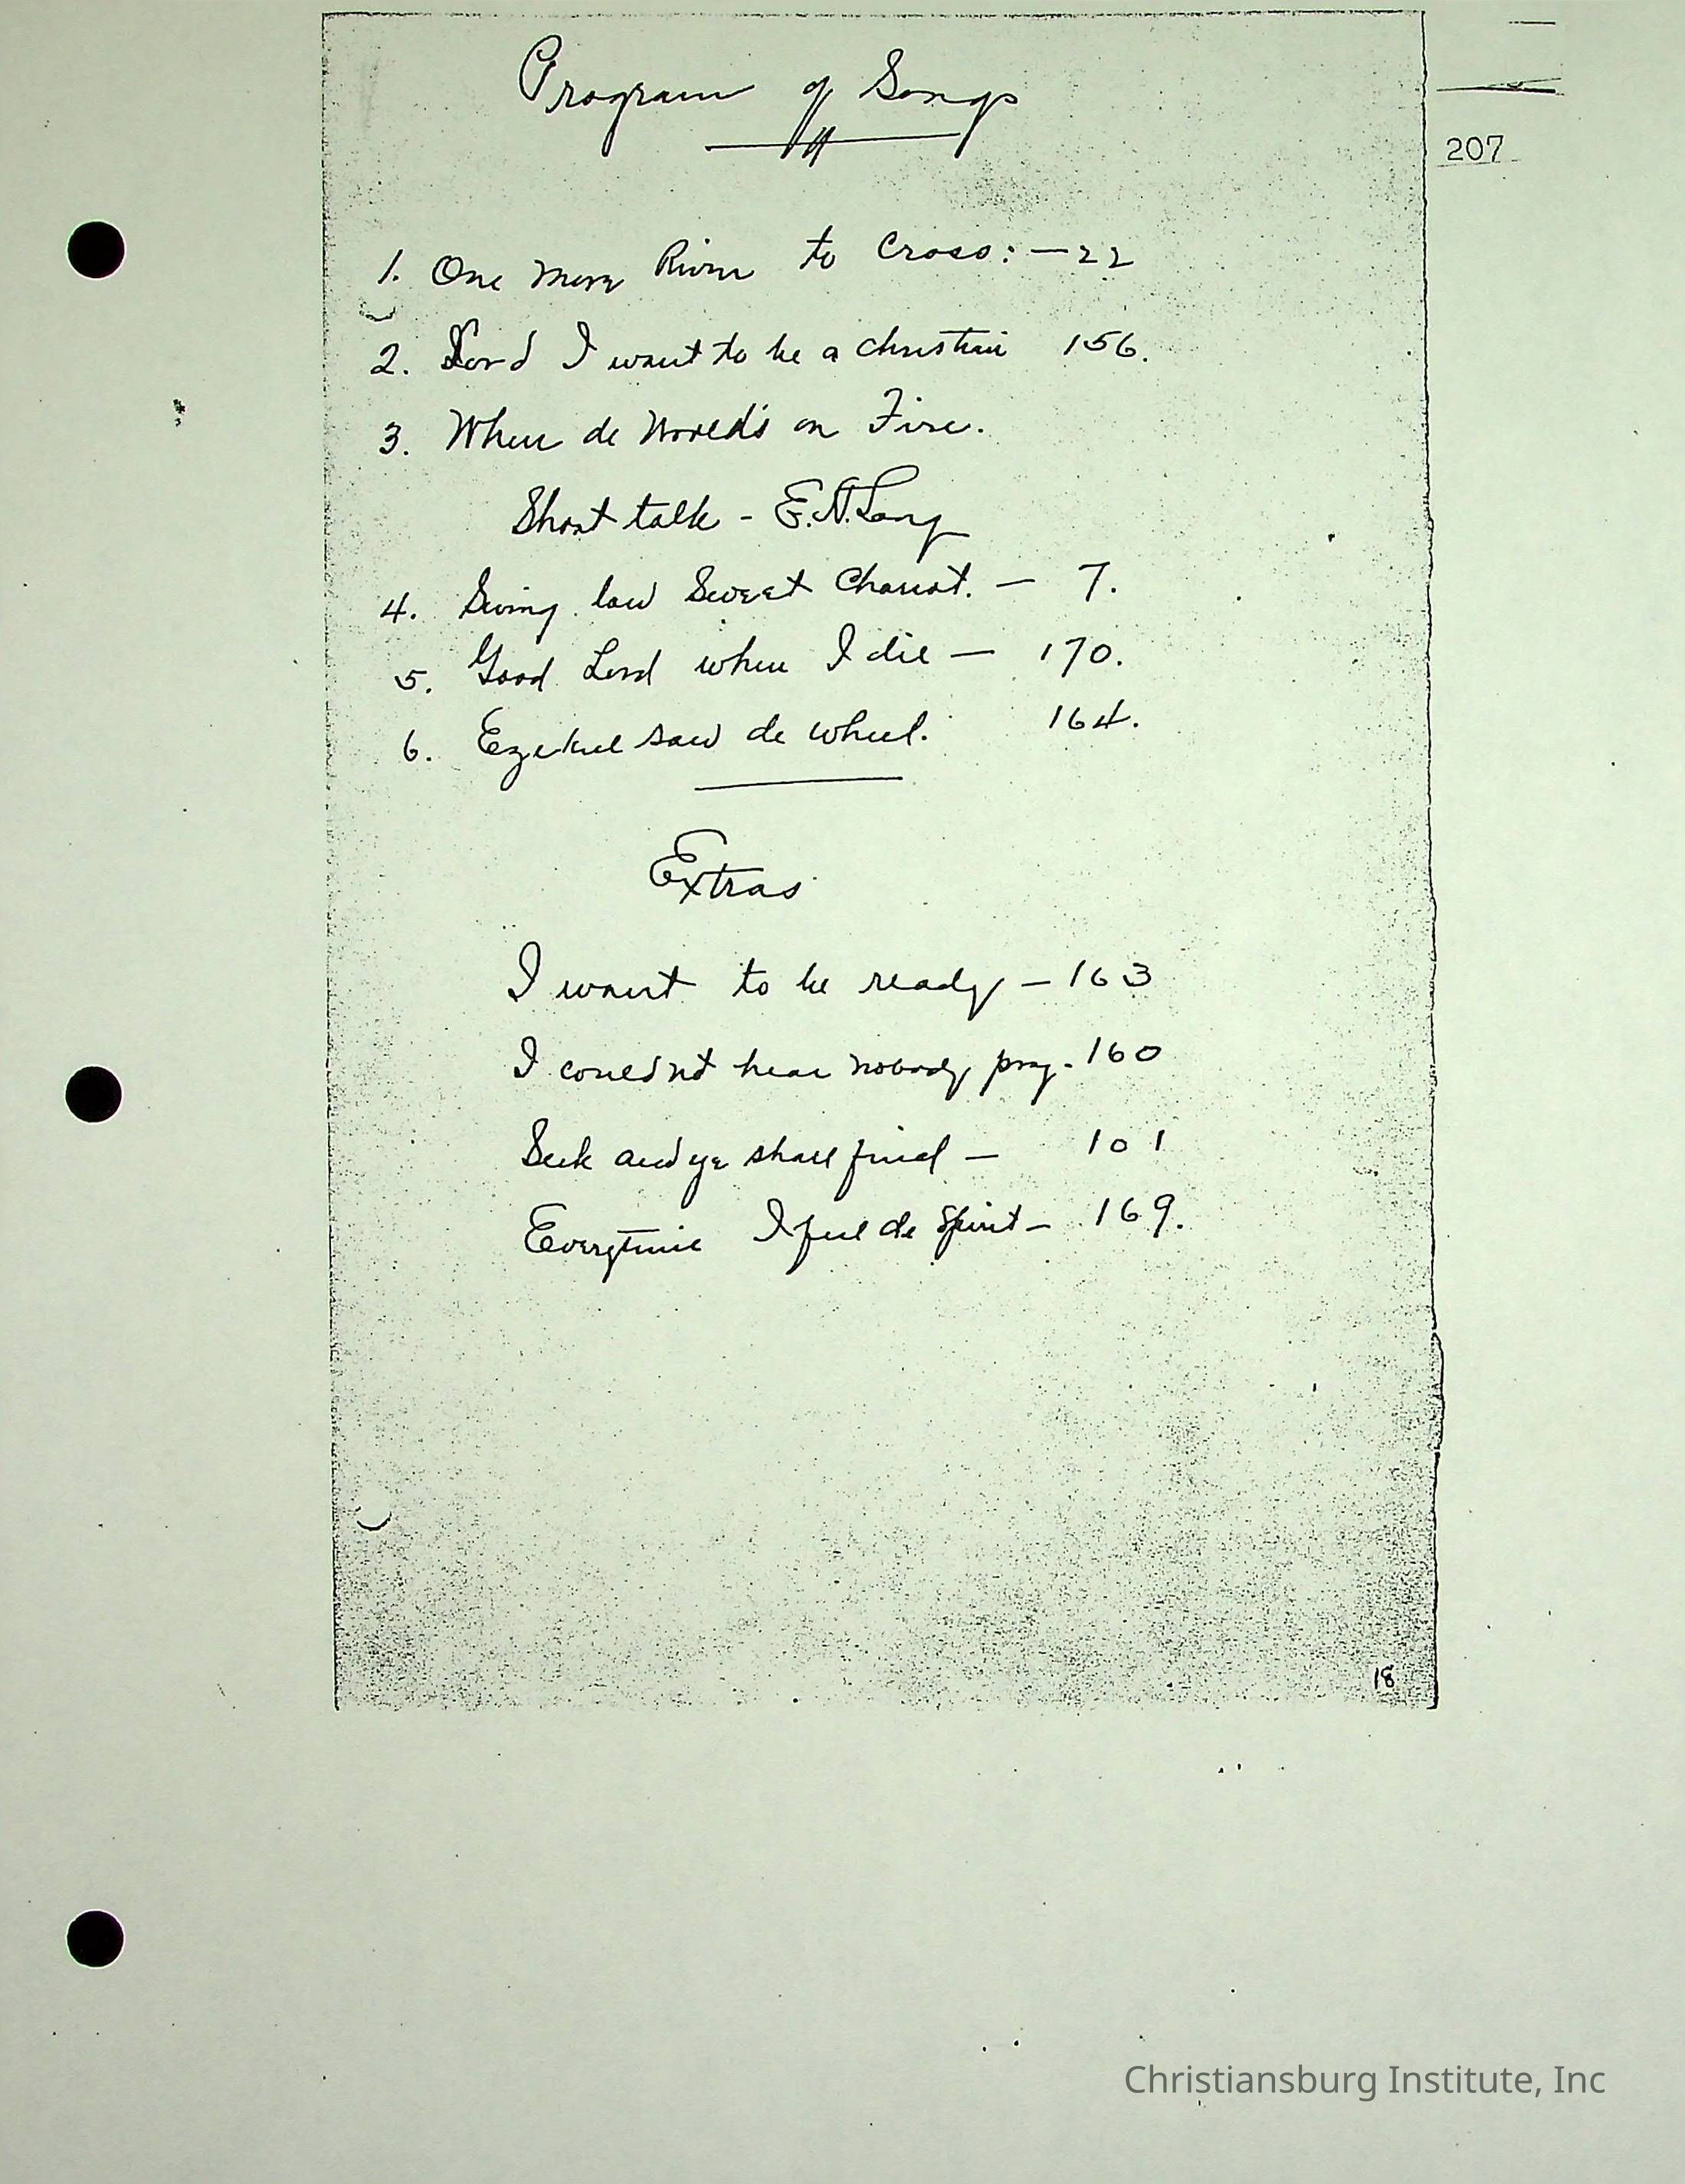 Program of Songs
207
1. One more River to Cross: — 22
2. Lord I want to be a christian 156.
3. When de World's on Fire.
Short talk - E.A. Long
4. Swing low Sweet Chariot. — 7.
5. Good Lord when I die — 170.
6. Ezekiel saw de wheel. 164.
Extras
I want to be ready — 163
I couldn't hear nobody pray - 160
Seek and ye shall find — 101
Everytime I feel de Spirit — 169.
18
Christiansburg Institute, Inc